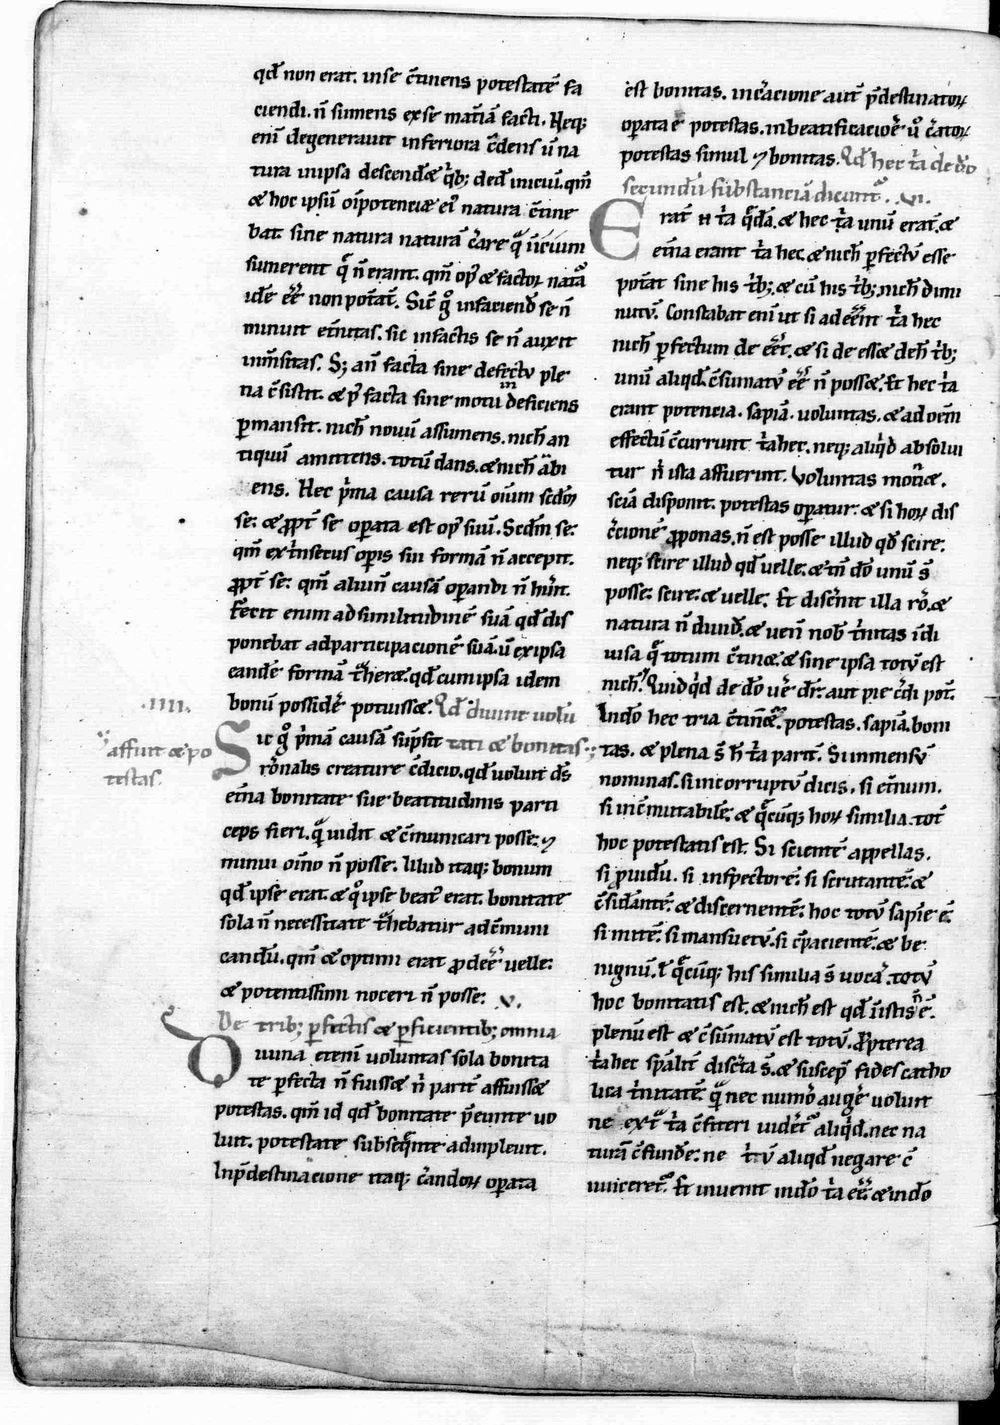 qd̄ non erat. inse c̄tinens potestatē fa
ciendi. n̄ sumens exse mat̄iā facti. Neq;
eni degenerauit inferiora c̄dens ū na
tura inipsa descendæ q̄b; dedit iniciū. qm̄
æ hoc ipsū oīpotenciæ ei᷒ natura c̄tine
bat sine natura naturā c̄are q̄
sumerent q̄ n̄ erant. qm̄ op᷒ æ factor
ēē non pot̄at. Sic̄ g̊ infaciend̄ se n̄
minuit et̄nitas. sic infactis se n̄ auxit
inm̄sitas. S; an̄ facta sine defectu ple
na c̄sistit. æ p᷒ facta sine motu indeficiens
ꝑmansit. nich̄ nouū assumens. nich̄ an
tiquū amittens. totū dans. æ nich̄
ens. Hec p̄ma causa rerū oīum
se: æ ꝓpt̄ se operata est op᷒ suū. Scdm̄ se:
qm̄ ext̄nsecus opis sui formā n̄ accepit.
ꝓpt̄ se: qm̄ aliun̄ causā operandi n̄ hūit.
Fecit enim ad similitudinē suā qd̄ dis
ponebat adparticipacionē suā. ū exipsa
eandē formā t̄heræ. qd̄ cumipsa idem
bonū possidēr potuissæ. Qd̄ diuine uolū
.IIII.
Sic g̊ p̄mā causā sūpsit tati æ bonitas
affuit æ po
testas.
rōnalis creature c̄dicio. qd̄ uoluit d̄s
et̄na bonitate sue beatitudinis parti
ceps fieri. q̄ uidit æ c̄municari posse: ⁊
minui oīno n̄ posse. Illud itaq; bonum
qd̄ ipse erat. æ q̊ ipse beat᷒ erat. bonitate
sola n̄ necessitate t̄hebatur adc̄muni
candū. qm̄ æ optimi erat ꝓdēē uelle:
æ potentissimi noceri n̄ posse: .V.
De trib; ꝑfectis æ ꝑficientib; omnia
Diuina etenī uoluntas sola bonita
te ꝑfecta n̄ fuissæ n̄ parit̄ affuissæ
potestas. qm̄ id qd̄ bonitate p̄eunte uo
luit. potestate subseq̄nte adimpleuit.
Inp̄destinacione itaq; c̄andoꝝ operata
est bonitas. inc̄acione aut̄ p̄destinatoꝝ
operata ē potestas. inbeatificacioē ū c̄atoꝝ
potestas simul ⁊ bonitas. Qd̄ hec t̄a de d̄o
secundū substanciā dicunt᷒. .VI.
Erat̄ t̄a q̄dā. æ hec t̄a unū erat̄. æ
et̄na erant t̄a hec. æ nich̄ ꝑfectū esse
pot̄at sine his t̄b; æ cū his t̄b; nich̄ dimi
nutū. Constabat eni ut si adeēnt t̄a hec
nich̄ ꝑfectum de eēt. æ si de essæ deh̄ t̄b;
unū aliqd̄ c̄sumatū ēē n̄ possæ. Et hec t̄a
erant potencia. sapiā. uoluntas. æ ad oēm
effectū c̄currunt t̄a hec. neq; aliq̄d absolui
tur n̄ ista affuerint. Voluntas mouæ.
sciā disponit. potestas operatur: æ si hoꝝ dis
c̄cionē ꝓponas. n̄ est posse illud qd̄ scire.
neq; scire illud qd̄ uelle: æ tn̄ d̄o unū ē
posse: scire: æ uelle: Et disc̄nit illa rō. æ
natura n̄ diuid̄. æ uenit nob̄ t̄nitas īdi
uisa q̄ totum c̄tinæ. æ sine ipsa totū est
nich̄. Quidq̄d de d̄o ūe d̄r. aut pie c̄di pot̄.
Indō hec tria c̄tinēt. potestas. sapiā. boni
tas. æ plena s̄ h̄ t̄a parit̄. Si inmensū
nominas. si incorruptū dicis. si et̄num.
si inc̄mutabilē: æ q̄cūq; hoꝝ similia. tot̄
hoc potestatis est. Si scientē appellas.
si ꝓuidū. si inspectorē: si scrutantē: æ
c̄sid̄antē: æ discernentē: hoc totū sapīe ē:
si mitē: si mansuetū. si c̄pacientē: æ be
nignū. ł q̄cūq; his similia s̄ uocar̄. totū
hoc bonitatis est. æ nich̄ est qd̄ īistis n̄ ē.
plenū est æ c̄sūmatū est totū. Propterea
t̄a hec sp̄alit̄ discta s̄. æ suscep̄ fides catho
lica t̄nitatē. q̄ nec num̄o augēr uoluit
ne ext̄ t̄a c̄fiteri uidēt᷒ aliq̄d. nec na
turā c̄funde: ne t̄ū aliqd̄ negare c̄
uinceret᷒. Et inuenit indō t̄a ēē. æ indō